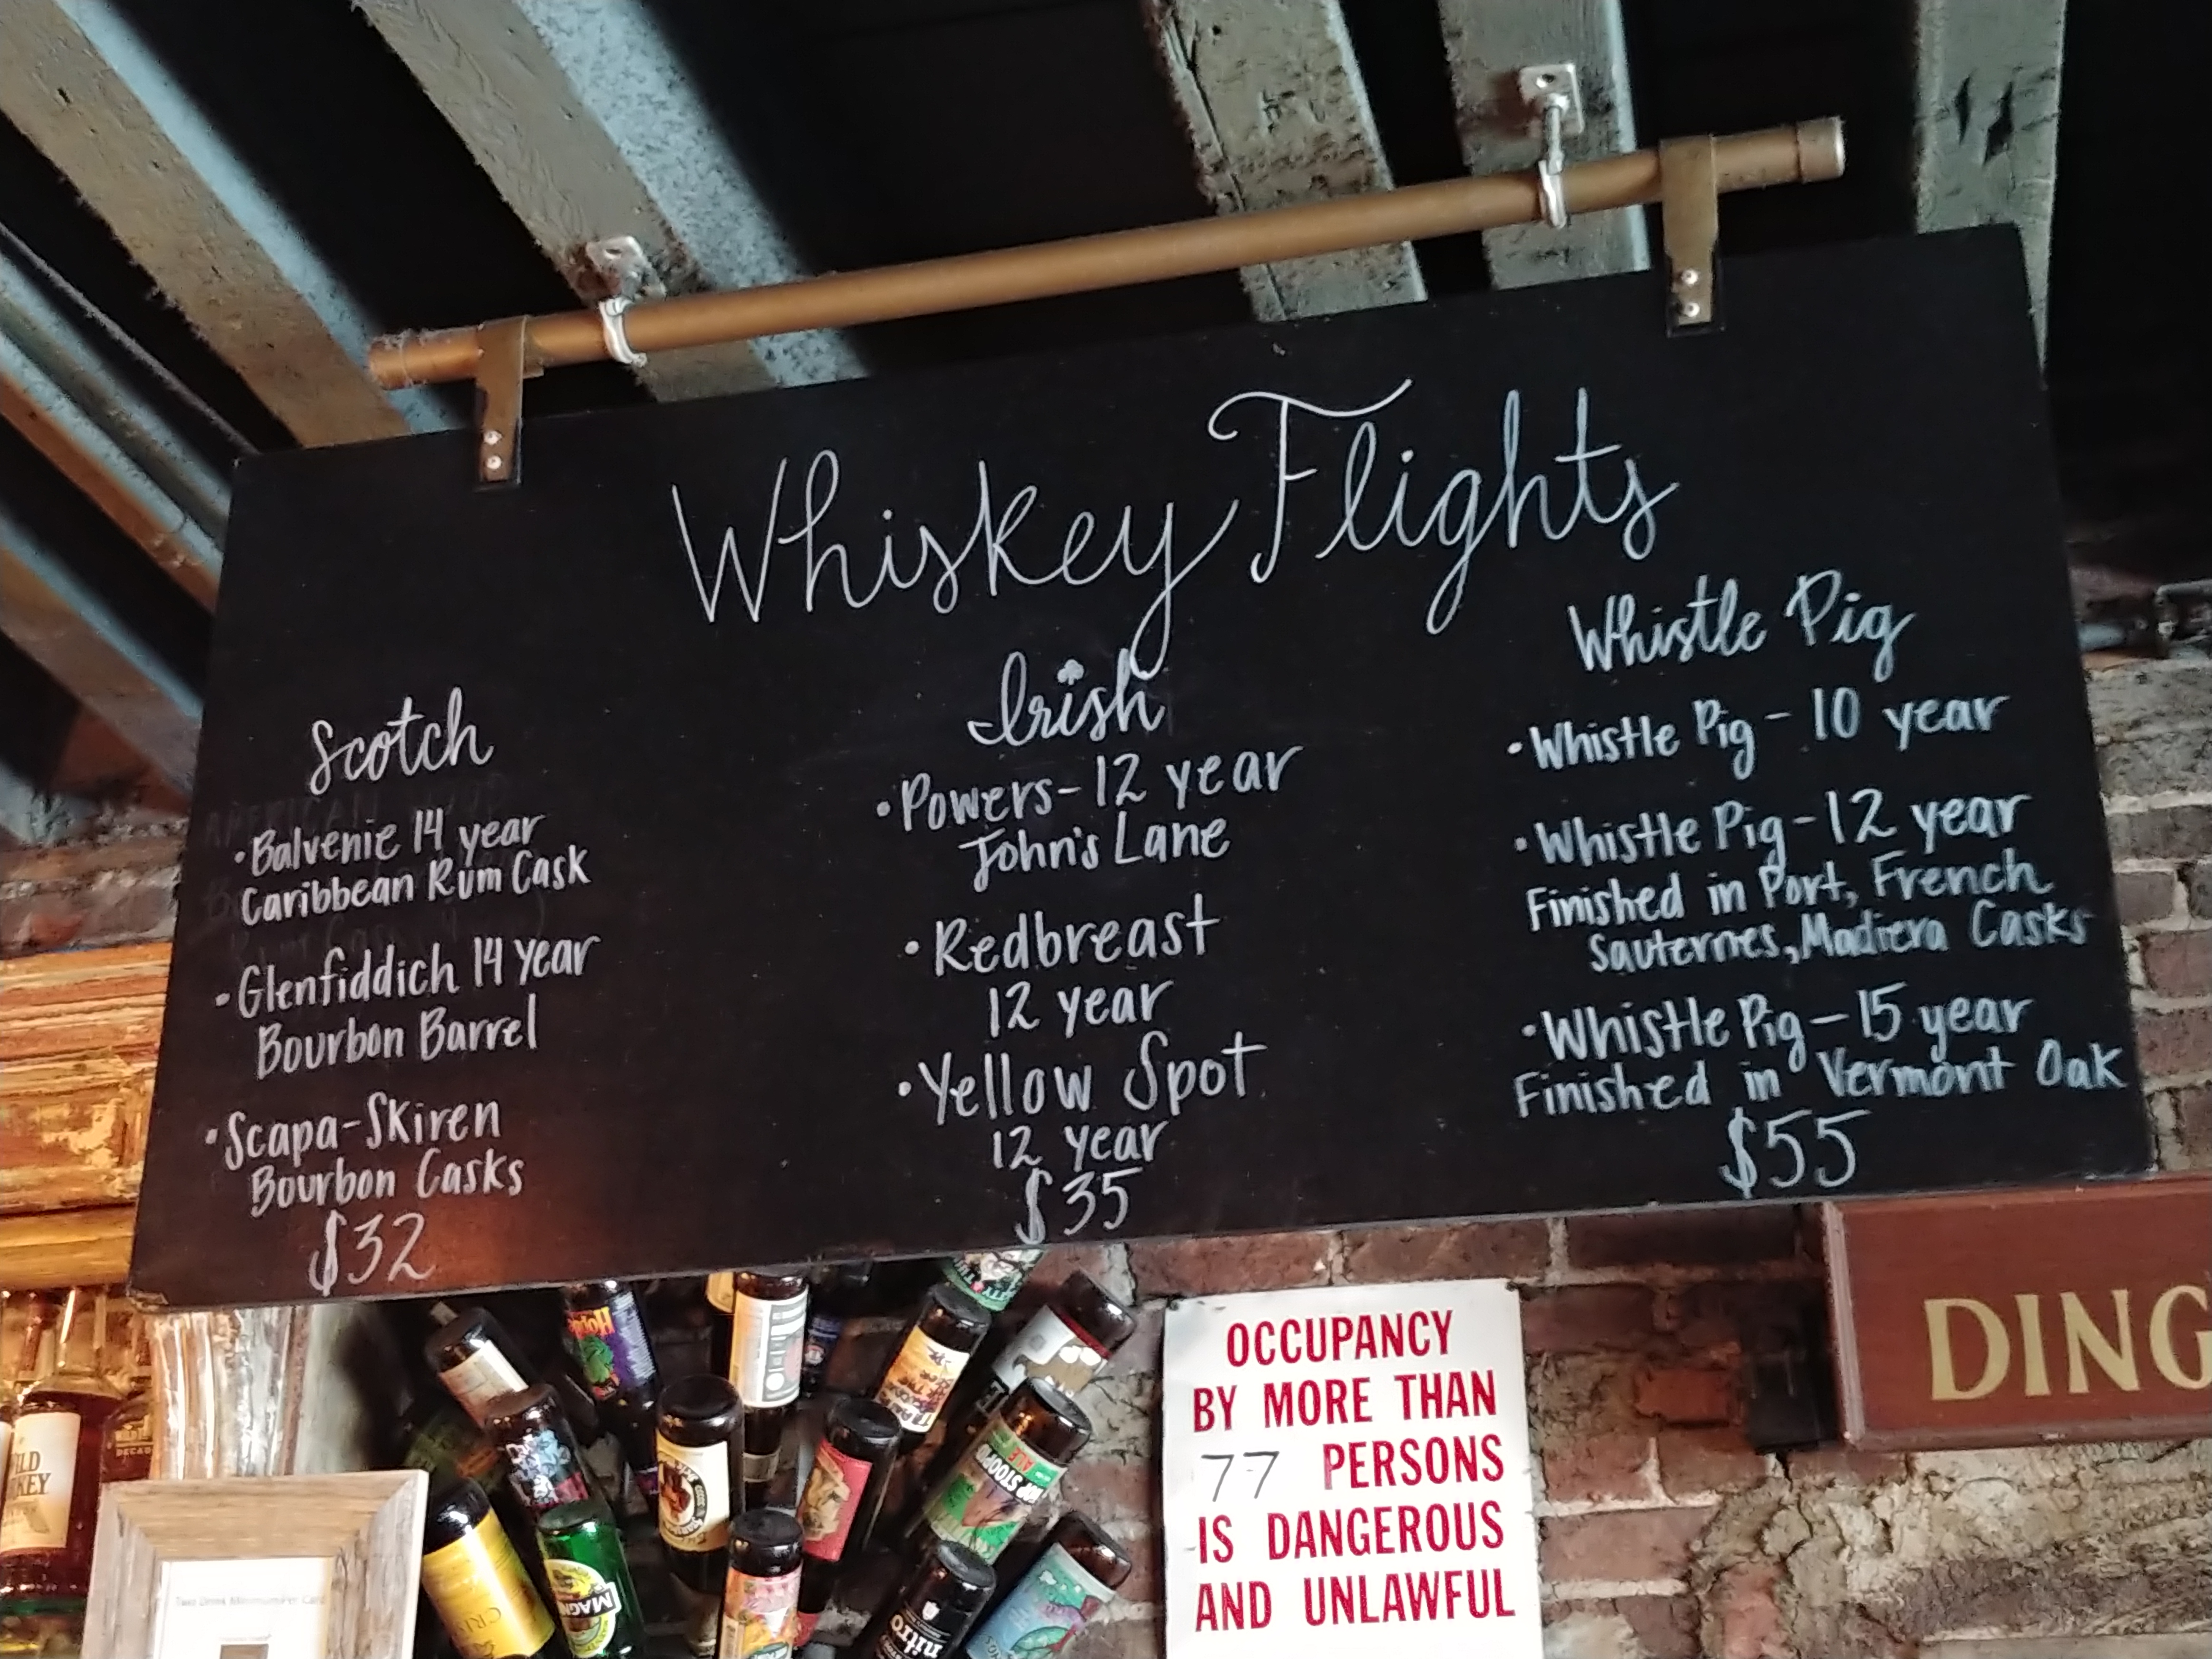 Whiskey Flights
Scotch
•Balvenie 14 year
Caribbean Rum Cask
•Glenfiddich 14 year
Bourbon Barrel
•Scapa-Skiren
Bourbon Casks
$32
Irish
•Powers-12 year
John's Lane
•Redbreast
12 year
•Yellow Spot
12 year
$35
Whistle Pig
•Whistle Pig-10 year
•Whistle Pig-12 year
Finished in Port, French
Sauternes, Madiera Casks
•Whistle Pig-15 year
Finished in Vermont Oak
$55
OCCUPANCY
BY MORE THAN
77 PERSONS
IS DANGEROUS
AND UNLAWFUL
DING
nitro
MAGN